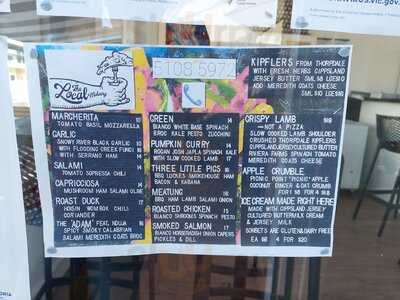 The Local
Makery
MARGHERITA 10
TOMATO BASIL MOZZARELLA
GARLIC
SNOWY RIVER BLACK GARLIC 10
WITH FLOODING CREEK FUNGI
WITH SERRANO HAM 14
SALAMI 14
TOMATO SOPRESSA CHILI
CAPRICCIOSA
MUSHROOM HAM SALAMI OLIVE
ROAST DUCK 17
HOISIN BOK CHOI CHILLI
CORIANDER
THE 'ADAM' FEAT. NDUJA
SPICY SMOKY CALABRIAN
SALAMI MEREDITH GOATS
5108 5972
GREEN 14
BIANCO WHITE BASE SPINACH
BROS KALE PESTO ZUCCHINI
PUMPKIN CURRY 14
ROGAN JOSH KALE SPINACH
WITH SLOW COOKED LAMB 17
THREE LITTLE PIGS 18
BBQ LUCKIES SMOKEHOUSE HAM
BACON & KABANA
MEATLUNG 18
BBQ HAM LAMB SALAMI ONION
ROASTED CHICKEN 17
BIANCO SHROOMS SPINACH PESTO
SMOKED SALMON 17
BIANCO HORSERADISH ONION CAPERS
PICKLES & DILL
KIPFLERS FROM THORPDALE
WITH FRESH HERBS GIPPSLAND
JERSEY BUTTER SML $8 LGE $10
ADD MEREDITH GOATS CHEESE
SML $10 LGE $12
CRISPY LAMB $18
- NOT A PIZZA
SLOW COOKED LAMB SHOULDER
CRUSHED THORPDALE KIPFLERS
GIPPSLAND JERSEY CULTURED BUTTER
RIVIERA FARMS SPINACH TOMATO
MEREDITH GOATS CHEESE
APPLE CRUMBLE
PICNIC POINT "PICNIC" APPLE
COCONUT GINGER & OAT CRUMB
FOR 1 $8 FOR 4
ICE CREAM MADE RIGHT HERE
MADE WITH GIPPSLAND JERSEY
CULTURED BUTTERMILK CREAM
& JERSEY MILK
SORBETS ARE GLUTEN & DAIRY FREE
EA $6 4 FOR $20